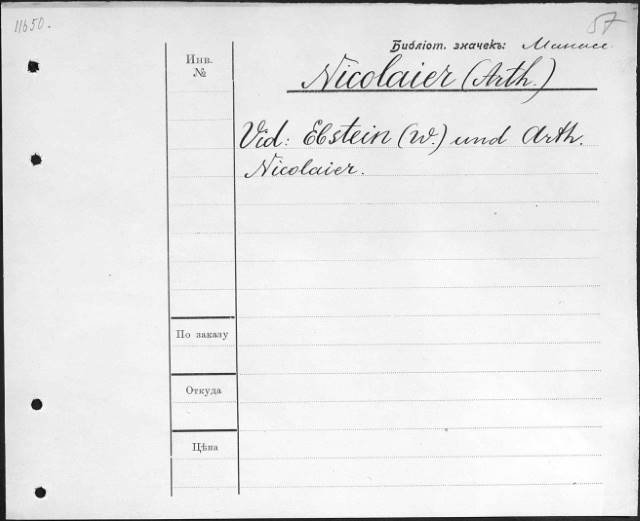 11650.
57
Библіот. значекъ:
Инв. №
Nicolaier (Arth.)
Vid: Ebstein (W.) und Arth.
Nicolaier.
По заказу
Откуда
Цѣна